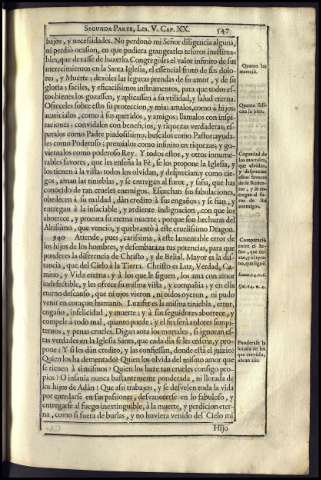 SEGUNDA PARTE, LIB. V. CAP. XX. 547
bajos, y necesidades. No perdonò mi Señor diligencia alguna,
ni perdiò ocasion, en que pudiera grangearles tesoros inestima-
bles, que dexase de hazerlo. Congregòles el valor infinito de sus
merecimientos en la Santa Iglesia, el essencial fruto de sus dolo-
res, y Muerte; dexòles las seguras prendas de su amor, y de su
gloria; faciles, y eficacissimos instrumentos, para que todos es-
tos bienes los gozassen, y aplicassen à su vtilidad, y salud eterna.
Ofreceles sobre esto su proteccion, y mia: amalos, como à hijos
acariciados, como à sus queridos, y amigos: llamalos con inspi-
raciones: combidalos con beneficios, y riquezas verdaderas, es-
peralos como Padre piadosissimo, buscalos como Pastor, ayuda-
les como Poderoso; premialos como infinito en riquezas; y go-
viernalos como poderoso Rey. Y todos estos, y otros innume-
rables favores, que les enseña la Fè, se los propone la Iglesia, y
los tienen à la vista: todos los olvidan, y desprecian; y como cie-
gos, aman las tinieblas, y se entregan al furor, y saña, que has
conocido de tan crueles enemigos. Escuchan sus fabulaciones,
obedecen à su maldad, dàn credito à sus engaños; y se fian, y
entregan à la insaciable, y ardiente indignacion, con que los
aborrece, y procura su eterna muerte; porque son hechuras del
Altissimo, que venciò, y quebrantò à este cruelissimo Dragon.
540 Atiende, pues, carissima, à este lamentable error de
los hijos de los hombres, y desembaraza tus potencias, para que
ponderes la diferencia de Christo, y de Belial. Mayor es la dis-
tancia, que del Cielo à la Tierra. Christo es Luz, Verdad, Ca-
mino, y Vida eterna; y à los que le siguen, los ama con amor
indefectible, y les ofrece su misma vista, y compañia; y en ella
eterno descanso, que ni ojos vieron, ni oidos oyeron, ni pudo
venir en corazon humano. Lucifer es la misma tiniebla, error,
engaño, infelicidad, y muerte; y à sus seguidores aborrece, y
compele à todo mal, quanto puede; y el fin serà ardores sempi-
ternos, y penas crueles. Digan aora los mortales, si ignoran es-
tas verdades en la Iglesia Santa, que cada dia se les enseña, y pro-
pone? Y si les dàn credito, y las confiessan, donde està el juizio?
Quien los ha dementado? Quien los olvida del mismo amor que
se tienen à si mismos? Quien los haze tan crueles consigo pro-
pios? O insania nunca bastante ponderada, ni llorada de
los hijos de Adàn! Que assi trabajen, y se desvelen toda la vida
por enredarse en sus passiones, desvanecerse en lo fabuloso, y
entregarse al fuego inextinguible, à la muerte, y perdicion eter-
na, como si fuera de burlas, y no huviera venido del Cielo mi
Hijo